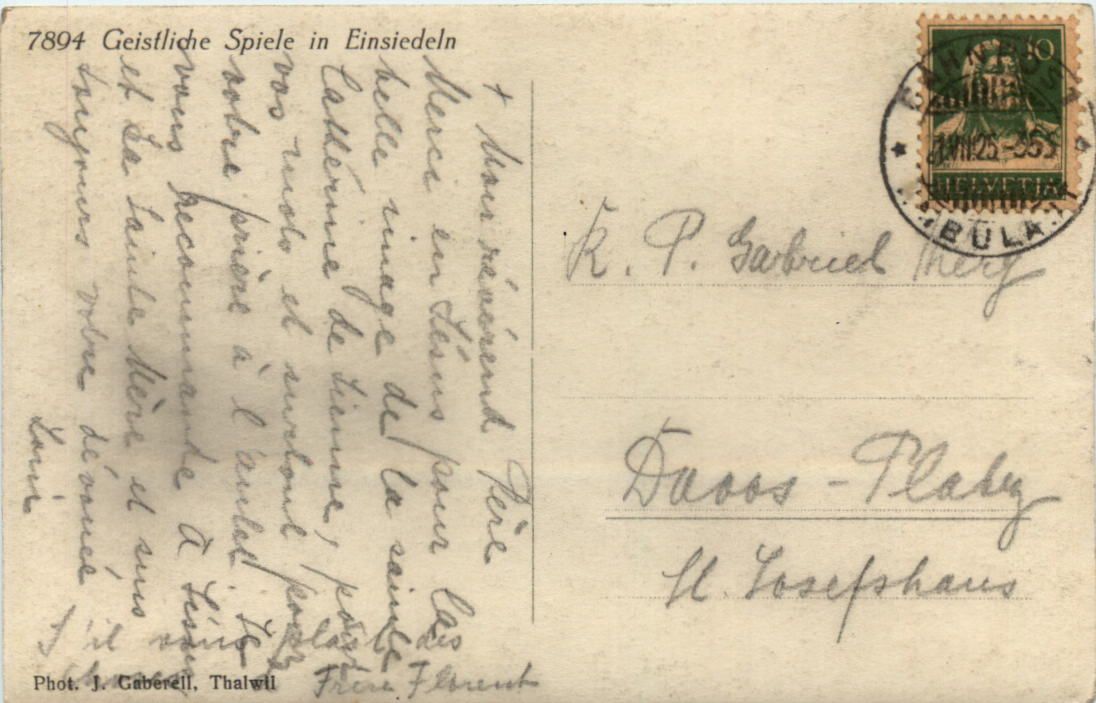 7894 Geistliche Spiele in Einsiedeln
+ Mon révérend Père
Merci en Jésus pour la
belle image de la sainte
Catherine de Sienne, pour
vos mots et surtout pour
votre prière à l'autel. Je
vous recommande à Jésus
et Sa Sainte Mère et suis
toujours votre dévoué
Louis
S'il vous plaît des
Frère Florent
Phot. J. Gaberell, Thalwil
10
HELVETIA
VII.25
R. P. Gabriel
Davos-Platz
St. Josefshaus